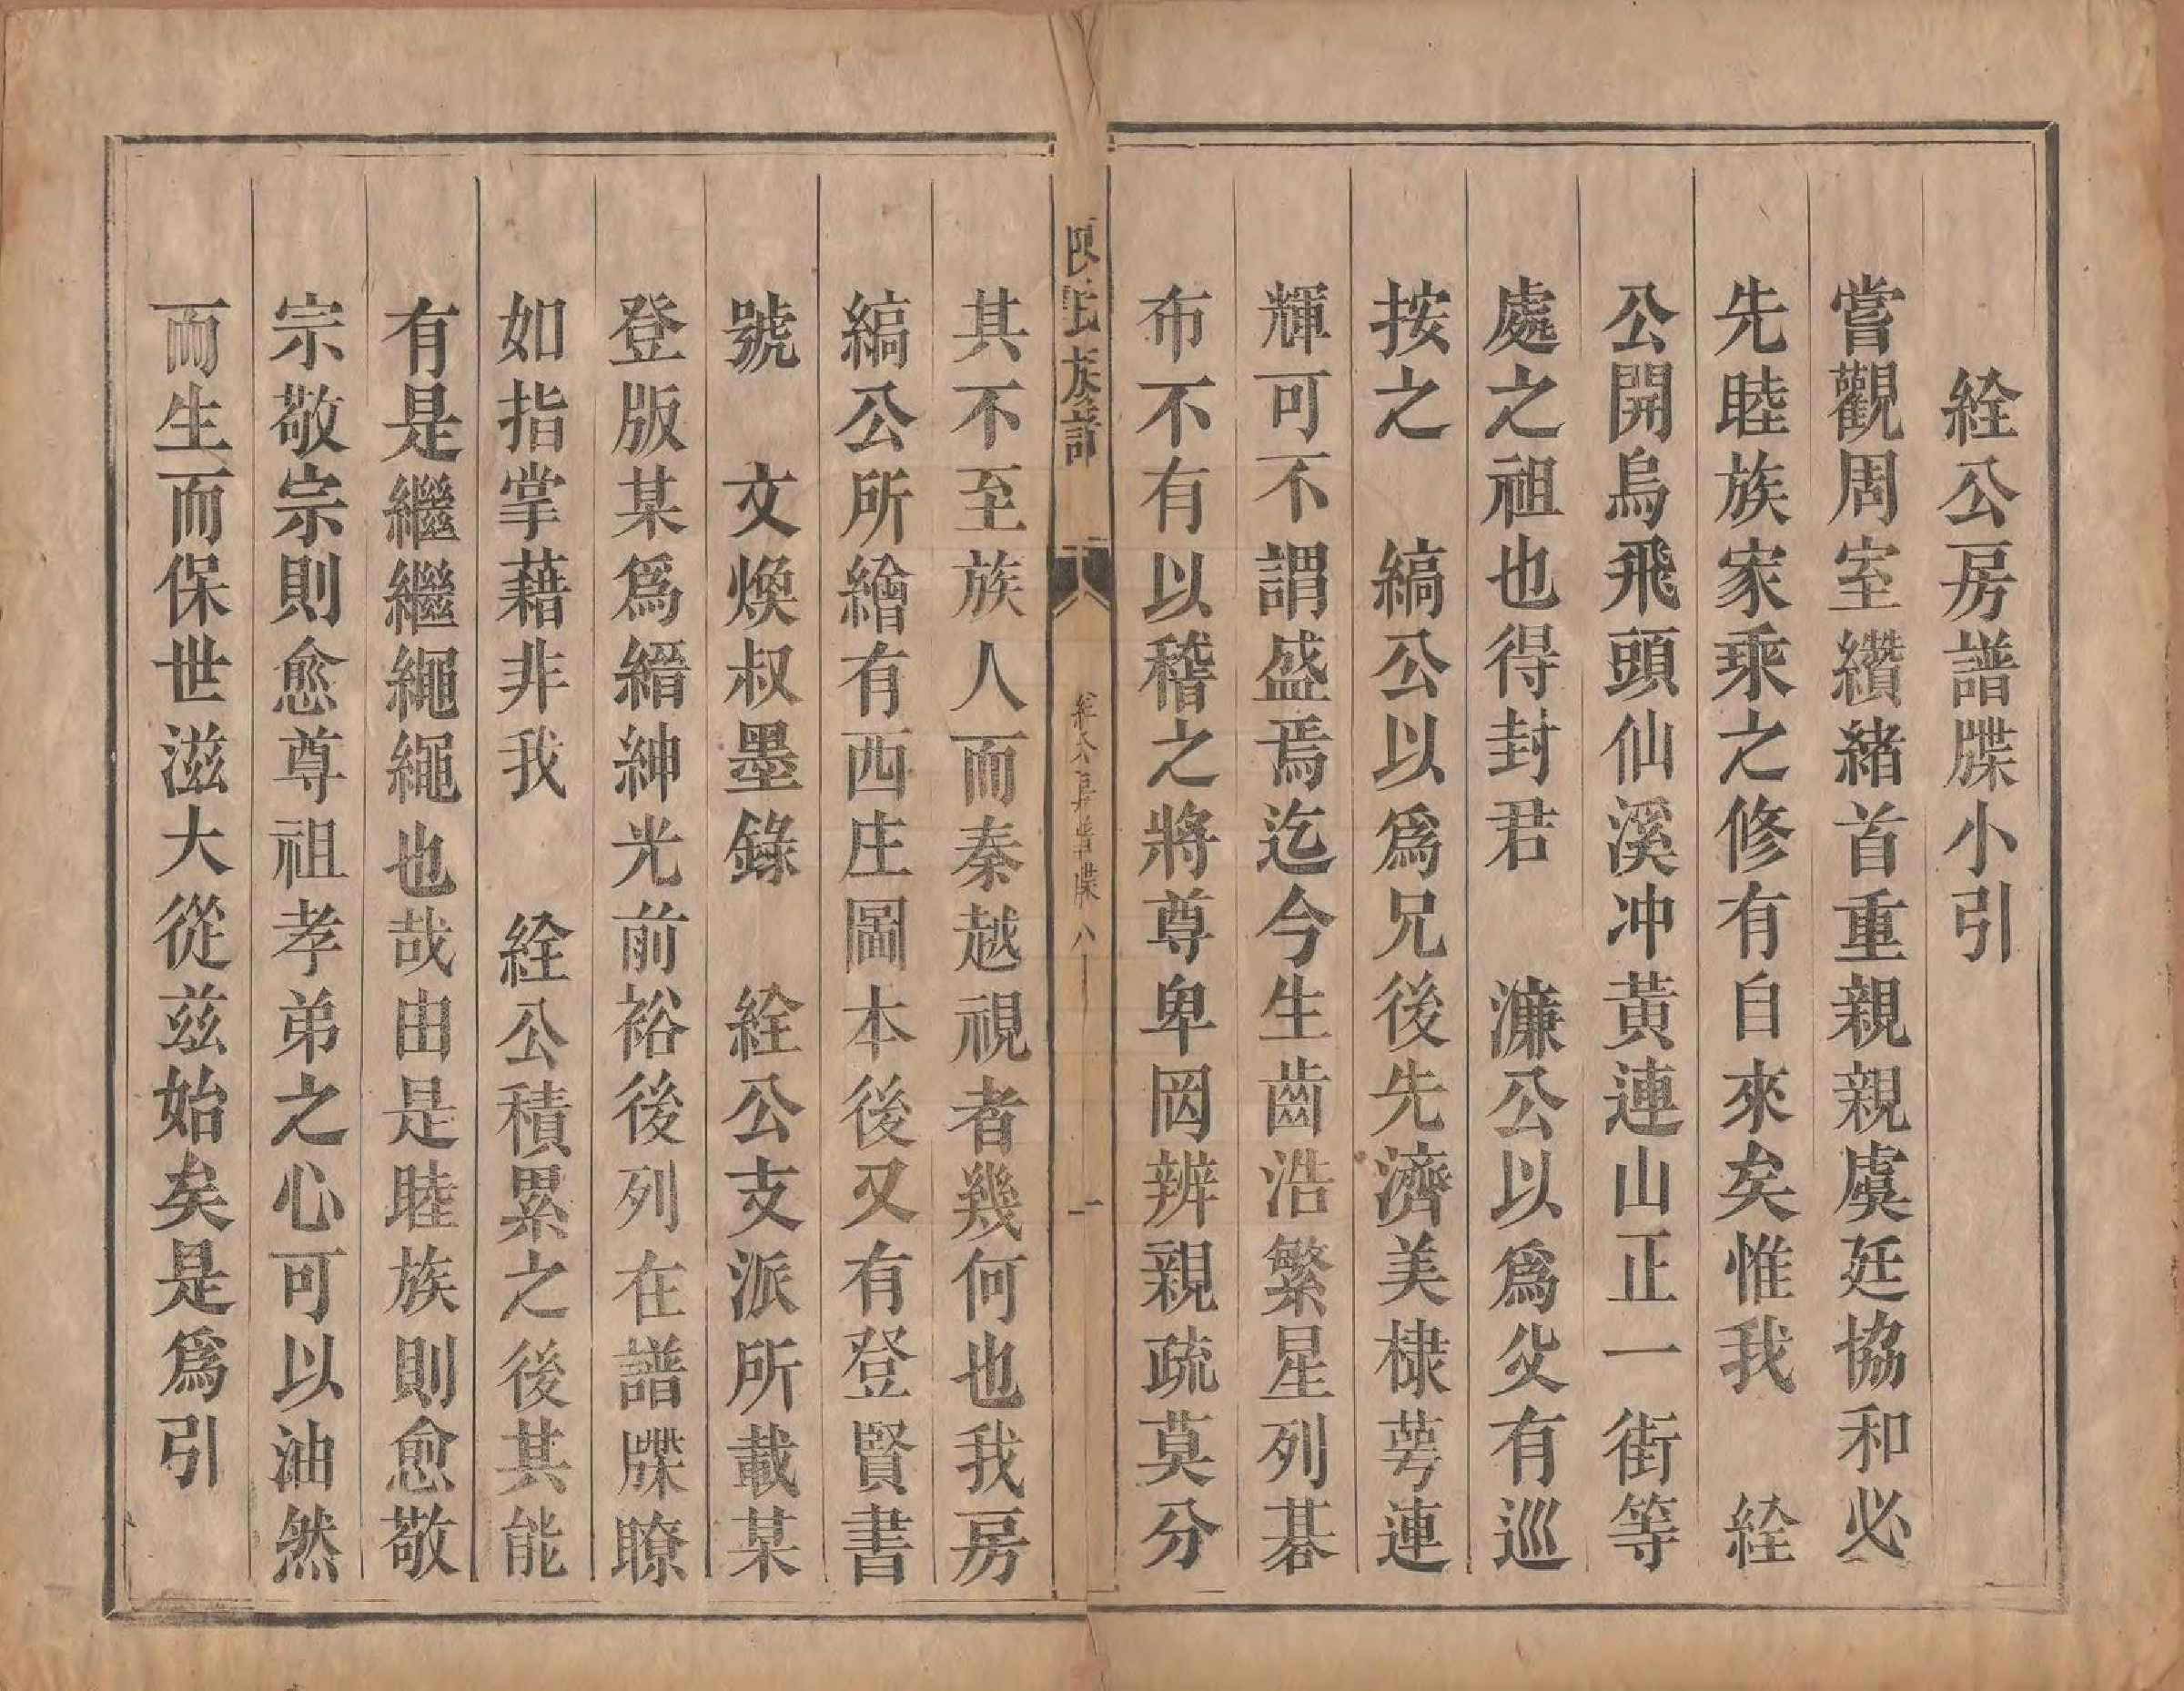 絟公房譜牒小引
嘗觀周室纘緒首重親親虞廷協和必
先睦族家乘之修有自來矣惟我　絟
公開烏飛頭仙溪冲黃連山正一街等
處之祖也得封君　濂公以爲父有巡
按之　縞公以爲兄後先濟美棣萼連
輝可不謂盛焉迄今生齒浩繁星列碁
布不有以稽之將尊卑罔辨親疏莫分
陳氏族譜　絟公房譜牒　八　一
其不至族人而秦越視者幾何也我房
縞公所繪有西庄圖本後又有登賢書
號　文煥叔墨錄　絟公支派所載某
登版某爲縉紳光前裕後列在譜牒瞭
如指掌藉非我　絟公積累之後其能
有是繼繼繩繩也哉由是睦族則愈敬
宗敬宗則愈尊祖孝弟之心可以油然
而生而保世滋大從茲始矣是爲引